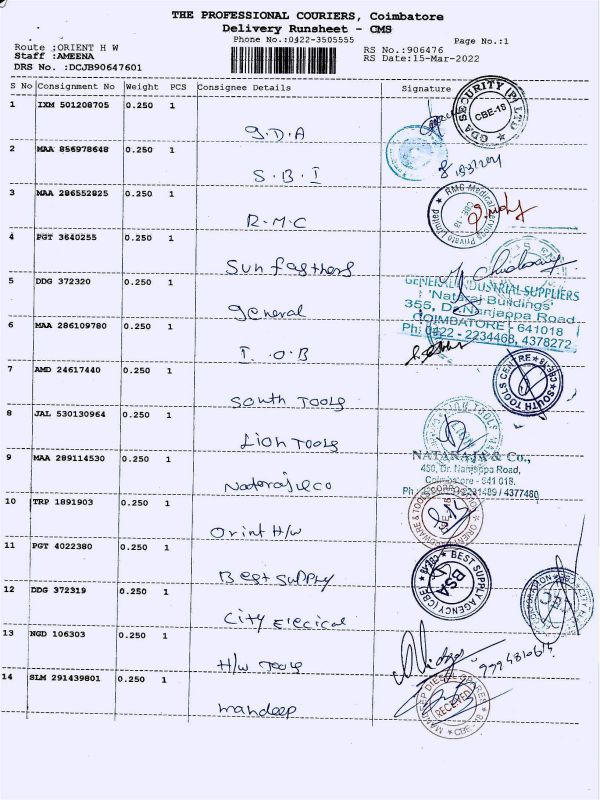 THE PROFESSIONAL COURIERS, Coimbatore
Delivery Runsheet - CMS
Phone No.:0422-3505555 Page No.:1
Route :ORIENT H W RS No.:906476
Staff :AMEENA RS Date:15-Mar-2022
DRS No. :DCJB90647601
S No Consignment No Weight PCS Consignee Details Signature
1 IXM 501208705 0.250 1
GDA SECURITY (P) LTD
CBE-18
G.D.A
2 MAA 856978648 0.250 1
S.B.I
3 MAA 286552825 0.250 1
RMC Medical Services Private Limited
CBE-18
R.M.C
4 PGT 3640255 0.250 1
Sun fastners
5 DDG 372320 0.250 1
GENERAL INDUSTRIAL SUPPLIERS
'Nataraj Buildings'
355, Dr. Nanjappa Road
COIMBATORE - 641018
Ph: 0422 - 2234468, 4378272
General
6 MAA 286109780 0.250 1
I.O.B
7 AMD 24617440 0.250 1
SOUTH TOOLS CENTRE CBE-18
South Tools
8 JAL 530130964 0.250 1
Lion Tools
9 MAA 289114530 0.250 1
NATARAJA & Co.,
450, Dr. Nanjappa Road,
Coimbatore - 641 018.
4377480
Nataraj & co
10 TRP 1891903 0.250 1
Orint H/w
11 PGT 4022380 0.250 1
BEST SUPPLY AGENCY CBE-18
BSA
Best Supply
12 DDG 372319 0.250 1
City Elecical
13 NGD 106303 0.250 1
H/w Tools
14 SLM 291439801 0.250 1
MANDEEP DIESEL SPARES
RECEIVED
CBE-18
mandeep